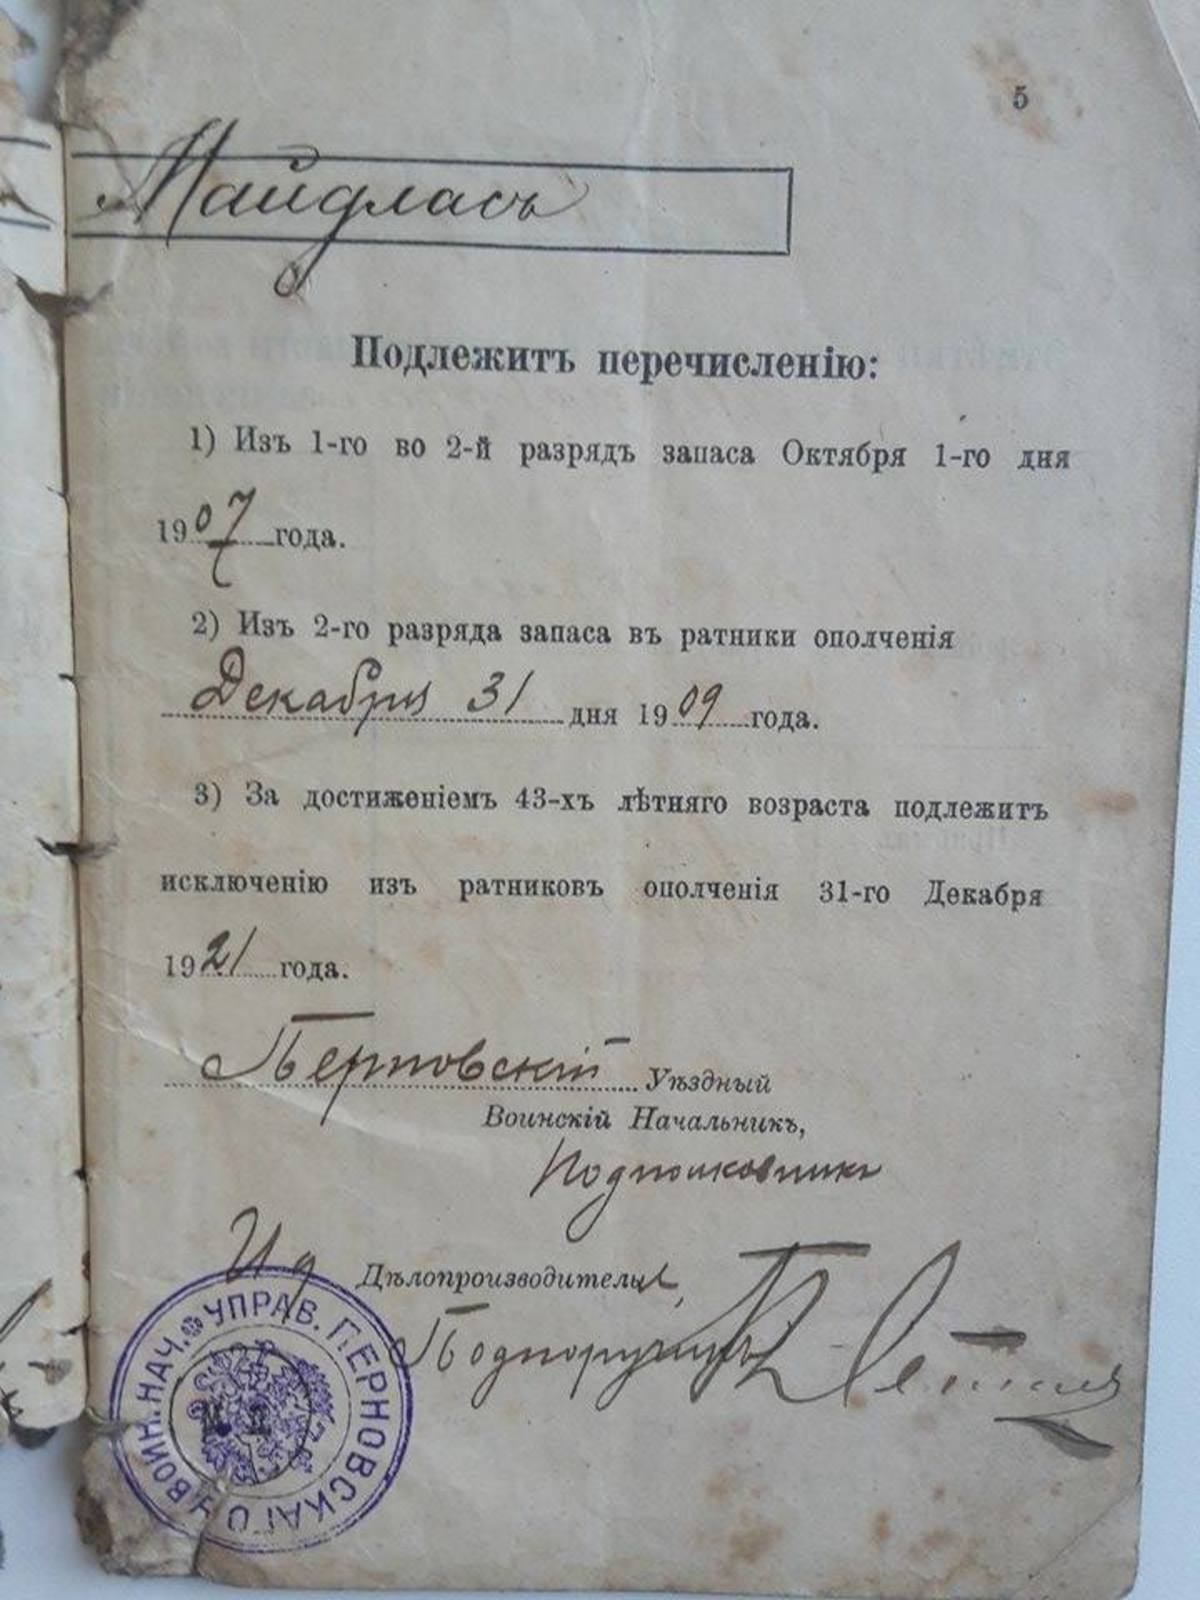 5
Майдласъ
Подлежитъ перечисленію:
1) Изъ 1-го во 2-й разрядъ запаса Октября 1-го дня
1907 года.
2) Изъ 2-го разряда запаса въ ратники ополченія
Декабря 31 дня 1909 года.
3) За достиженіемъ 43-хъ лѣтняго возраста подлежитъ
исключенію изъ ратниковъ ополченія 31-го Декабря
1921 года.
Перновскій Уѣздный
Воинскій Начальникъ,
Подполковникъ
И д Дѣлопроизводителя,
Подпоручикъ
УПРАВ. ПЕРНОВСКАГО ВОИН. НАЧ.